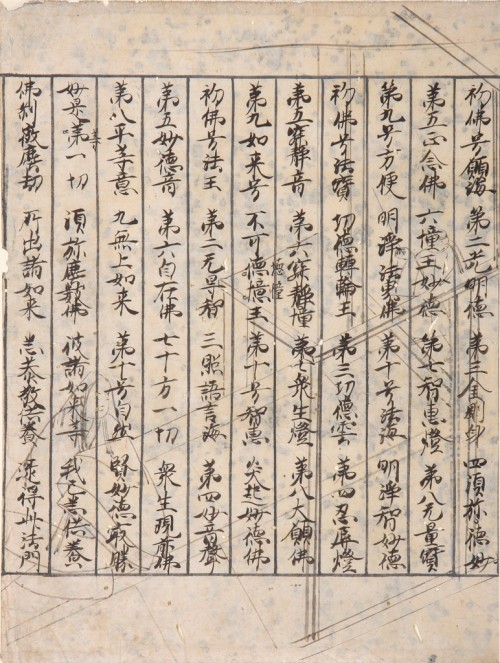 初佛号願海 第二光明德 第三金剛身 四須弥德妙
第五正念佛 六憧王妙德 第七智惠燈 第八无量寶
第九号方便 明淨法界佛 第十号法海 明淨智妙德
初佛号法寶 功德轉輪王 第三功德雲 第四忍辱燈
第五寂靜音 第六寂靜憧 第七衆生燈 第八大願佛
第九如来号 不可德憧王 第十号智惠 炎起妙德佛
初佛号法王 第二无 智 三照語言海 第四妙音聲
第五妙德音 第六自在佛 七十方一切 衆生現前佛
第八平等意 九無上如来 第十号自然 賢妙德最勝
如是等一切 須弥塵數佛 彼諸如来等 我已悉供養
佛刹微塵劫 所出諸如来 悉恭敬供養 逮得此法門